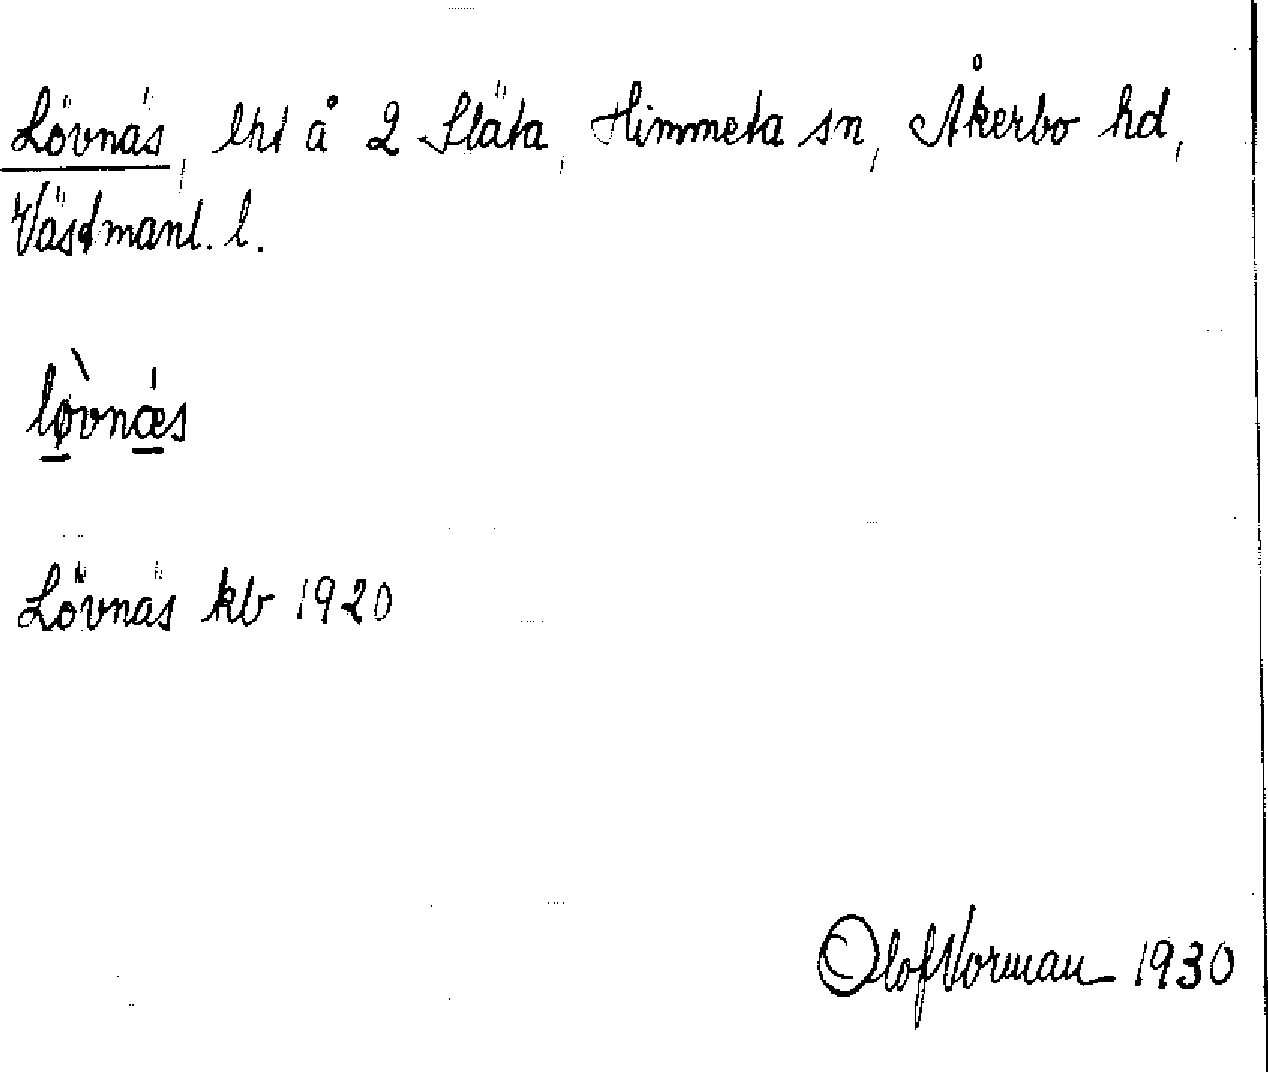 Lövnäs, lht å 2 Släta, Himmeta sn, Åkerbo hd,
Västmanl. l.
lø̀vnæs
Lövnäs kb 1920
Olof Norman 1930